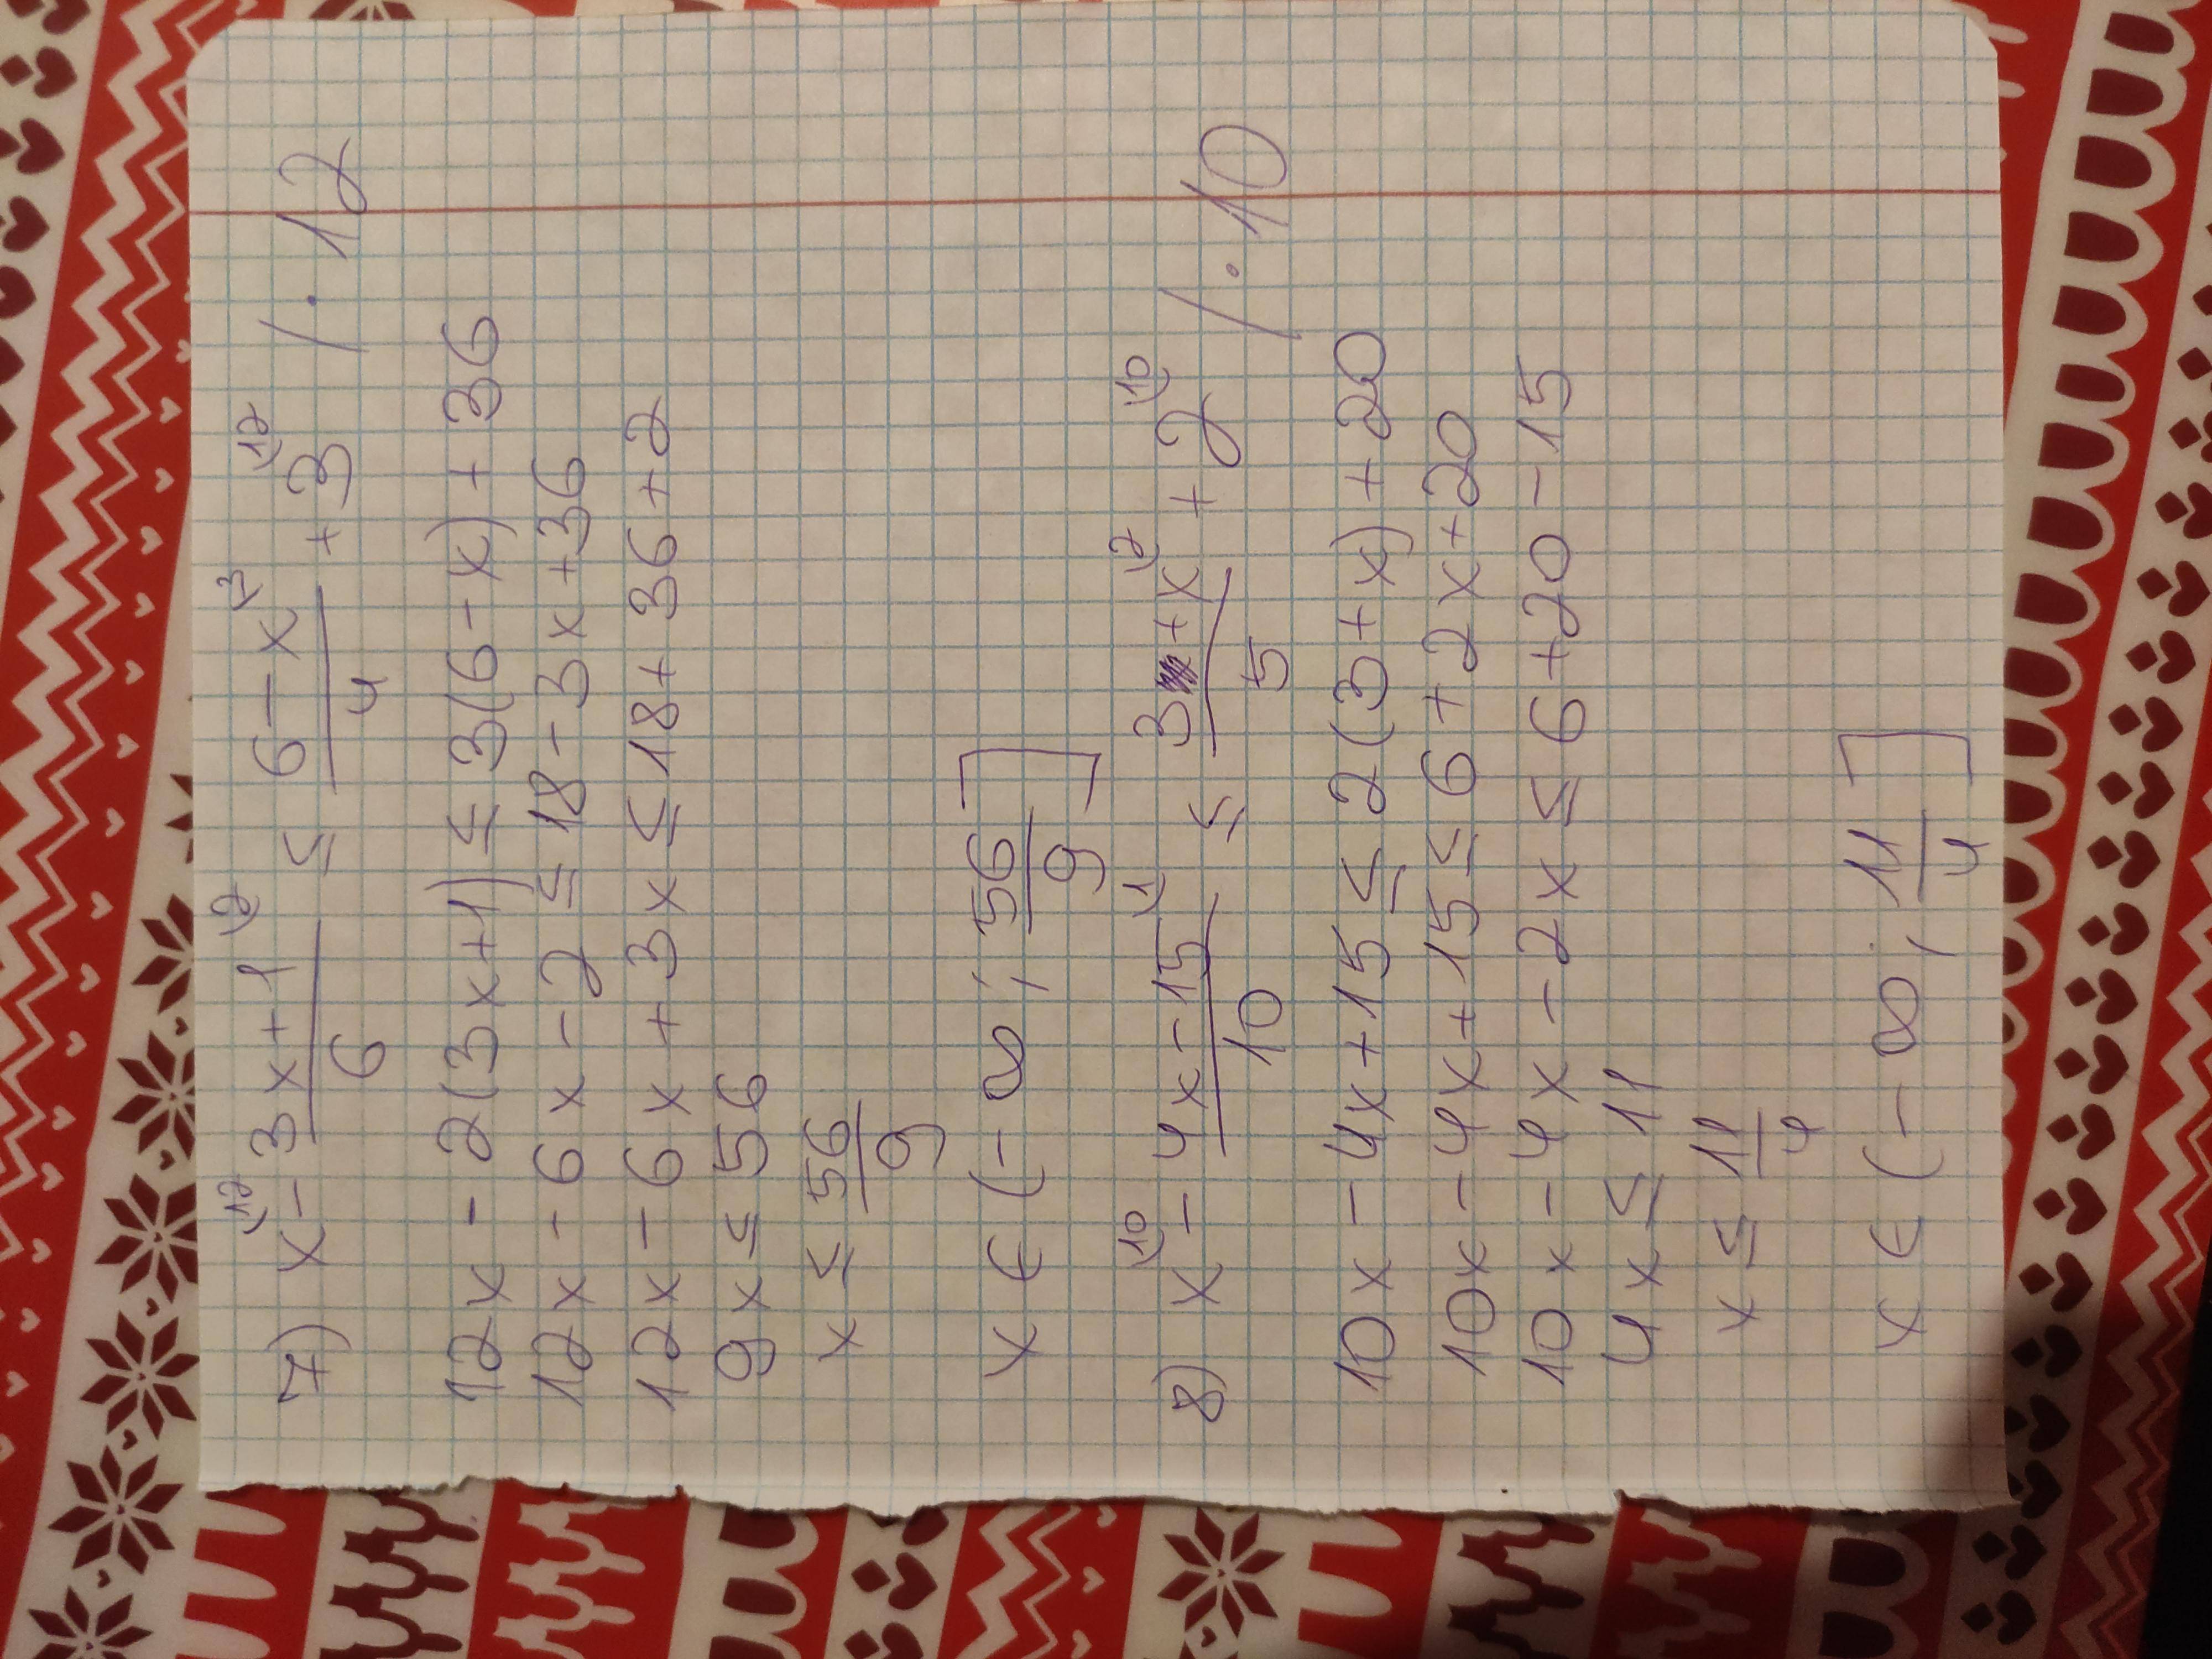 7) x^(12 - (3x+1)/6^(2 ≤ (6-x)/4^(3 + 3^(12 / · 12
12x - 2(3x+1) ≤ 3(6-x) + 36
12x - 6x - 2 ≤ 18 - 3x + 36
12x - 6x + 3x ≤ 18 + 36 + 2
9x ≤ 56
x ≤ 56/9
x ∈ (-∞ ; 56/9]
8) x^(10 - (4x-15)/10^(1 ≤ (3+x)/5^(2 + 2^(10 / · 10
10x - 4x + 15 ≤ 2(3+x) + 20
10x - 4x + 15 ≤ 6 + 2x + 20
10x - 4x - 2x ≤ 6 + 20 - 15
4x ≤ 11
x ≤ 11/4
x ∈ (-∞ ; 11/4]